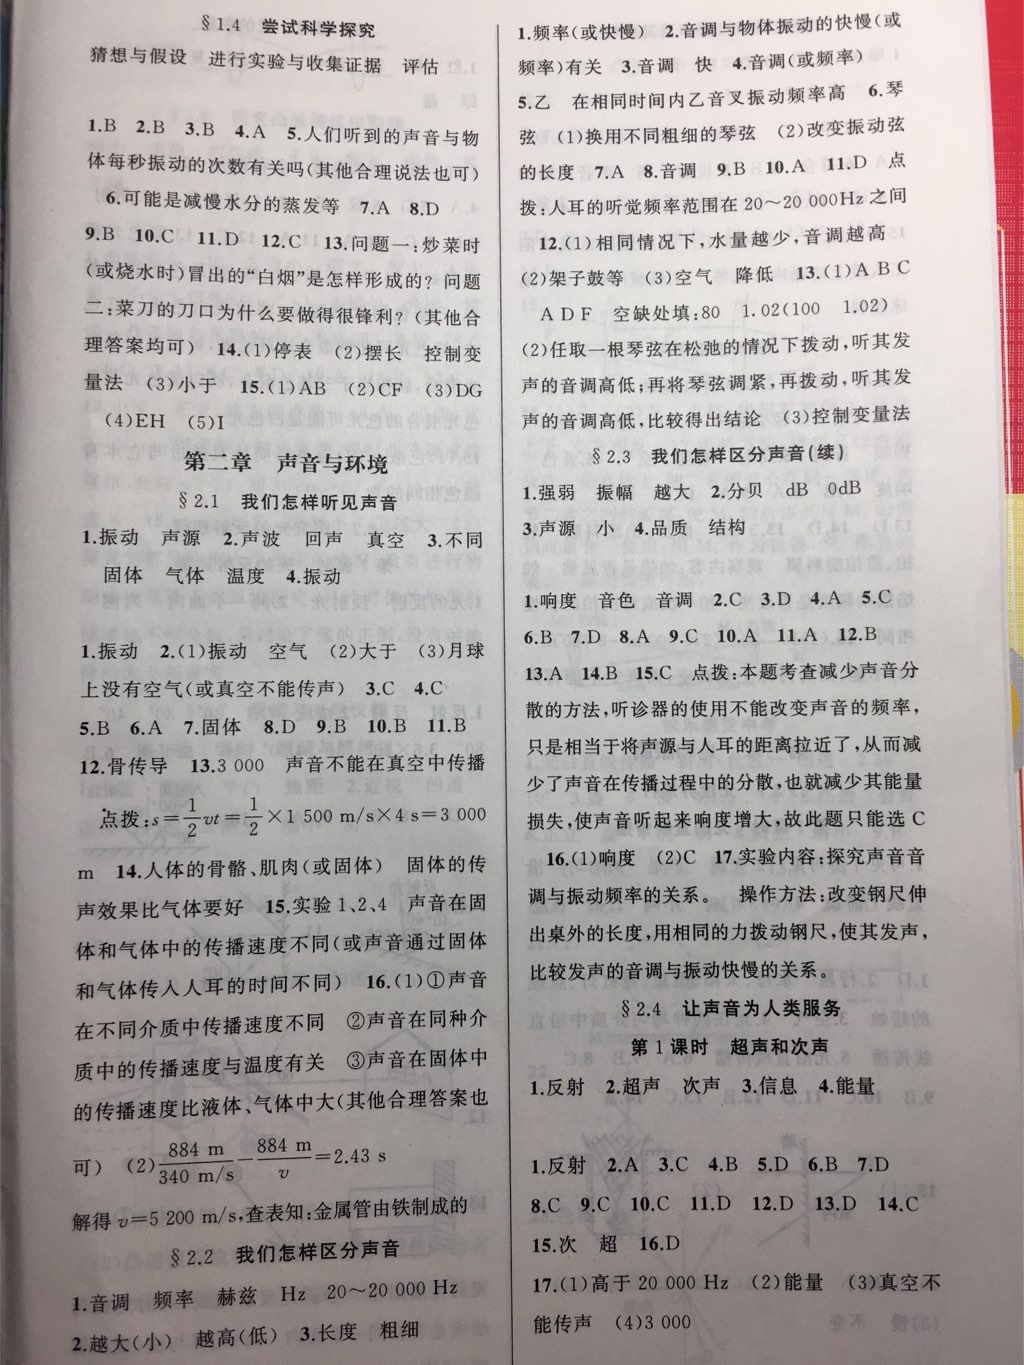 §1.4 尝试科学探究
猜想与假设 进行实验与收集证据 评估
1.B 2.B 3.B 4.A 5.人们听到的声音与物
体每秒振动的次数有关吗(其他合理说法也可)
6.可能是减慢水分的蒸发等 7.A 8.D
9.B 10.C 11.D 12.C 13.问题一:炒菜时
(或烧水时)冒出的“白烟”是怎样形成的? 问题
二:菜刀的刀口为什么要做得很锋利? (其他合
理答案均可) 14.(1)停表 (2)摆长 控制变
量法 (3)小于 15.(1)AB (2)CF (3)DG
(4)EH (5)I
第二章 声音与环境
§2.1 我们怎样听见声音
1.振动 声源 2.声波 回声 真空 3.不同
固体 气体 温度 4.振动
1.振动 2.(1)振动 空气 (2)大于 (3)月球
上没有空气(或真空不能传声) 3.C 4.C
5.B 6.A 7.固体 8.D 9.B 10.B 11.B
12.骨传导 13.3 000 声音不能在真空中传播
点拨:s=1/2vt=1/2×1 500 m/s×4 s=3 000
m 14.人体的骨骼、肌肉(或固体) 固体的传
声效果比气体要好 15.实验1、2、4 声音在固
体和气体中的传播速度不同(或声音通过固体
和气体传入人耳的时间不同) 16.(1)①声音
在不同介质中传播速度不同 ②声音在同种介
质中的传播速度与温度有关 ③声音在固体中
的传播速度比液体、气体中大(其他合理答案也
可) (2)884 m/340 m/s-884 m/v=2.43 s
解得v=5 200 m/s,查表知:金属管由铁制成的
§2.2 我们怎样区分声音
1.音调 频率 赫兹 Hz 20~20 000 Hz
2.越大(小) 越高(低) 3.长度 粗细
1.频率(或快慢) 2.音调与物体振动的快慢(或
频率)有关 3.音调 快 4.音调(或频率)
5.乙 在相同时间内乙音叉振动频率高 6.琴
弦 (1)换用不同粗细的琴弦 (2)改变振动弦
的长度 7.A 8.音调 9.B 10.A 11.D 点
拨:人耳的听觉频率范围在20~20 000Hz之间
12.(1)相同情况下,水量越少,音调越高
(2)架子鼓等 (3)空气 降低 13.(1)A B C
A D F 空缺处填:80 1.02(100 1.02)
(2)任取一根琴弦在松弛的情况下拨动,听其发
声的音调高低;再将琴弦调紧,再拨动,听其发
声的音调高低,比较得出结论 (3)控制变量法
§2.3 我们怎样区分声音(续)
1.强弱 振幅 越大 2.分贝 dB 0dB
3.声源 小 4.品质 结构
1.响度 音色 音调 2.C 3.D 4.A 5.C
6.B 7.D 8.A 9.C 10.A 11.A 12.B
13.A 14.B 15.C 点拨:本题考查减少声音分
散的方法,听诊器的使用不能改变声音的频率,
只是相当于将声源与人耳的距离拉近了,从而减
少了声音在传播过程中的分散,也就减少其能量
损失,使声音听起来响度增大,故此题只能选C
16.(1)响度 (2)C 17.实验内容:探究声音音
调与振动频率的关系。 操作方法:改变钢尺伸
出桌外的长度,用相同的力拨动钢尺,使其发声,
比较发声的音调与振动快慢的关系。
§2.4 让声音为人类服务
第1课时 超声和次声
1.反射 2.超声 次声 3.信息 4.能量
1.反射 2.A 3.C 4.B 5.D 6.B 7.D
8.C 9.C 10.C 11.D 12.D 13.D 14.C
15.次 超 16.D
17.(1)高于20 000 Hz (2)能量 (3)真空不
能传声 (4)3 000